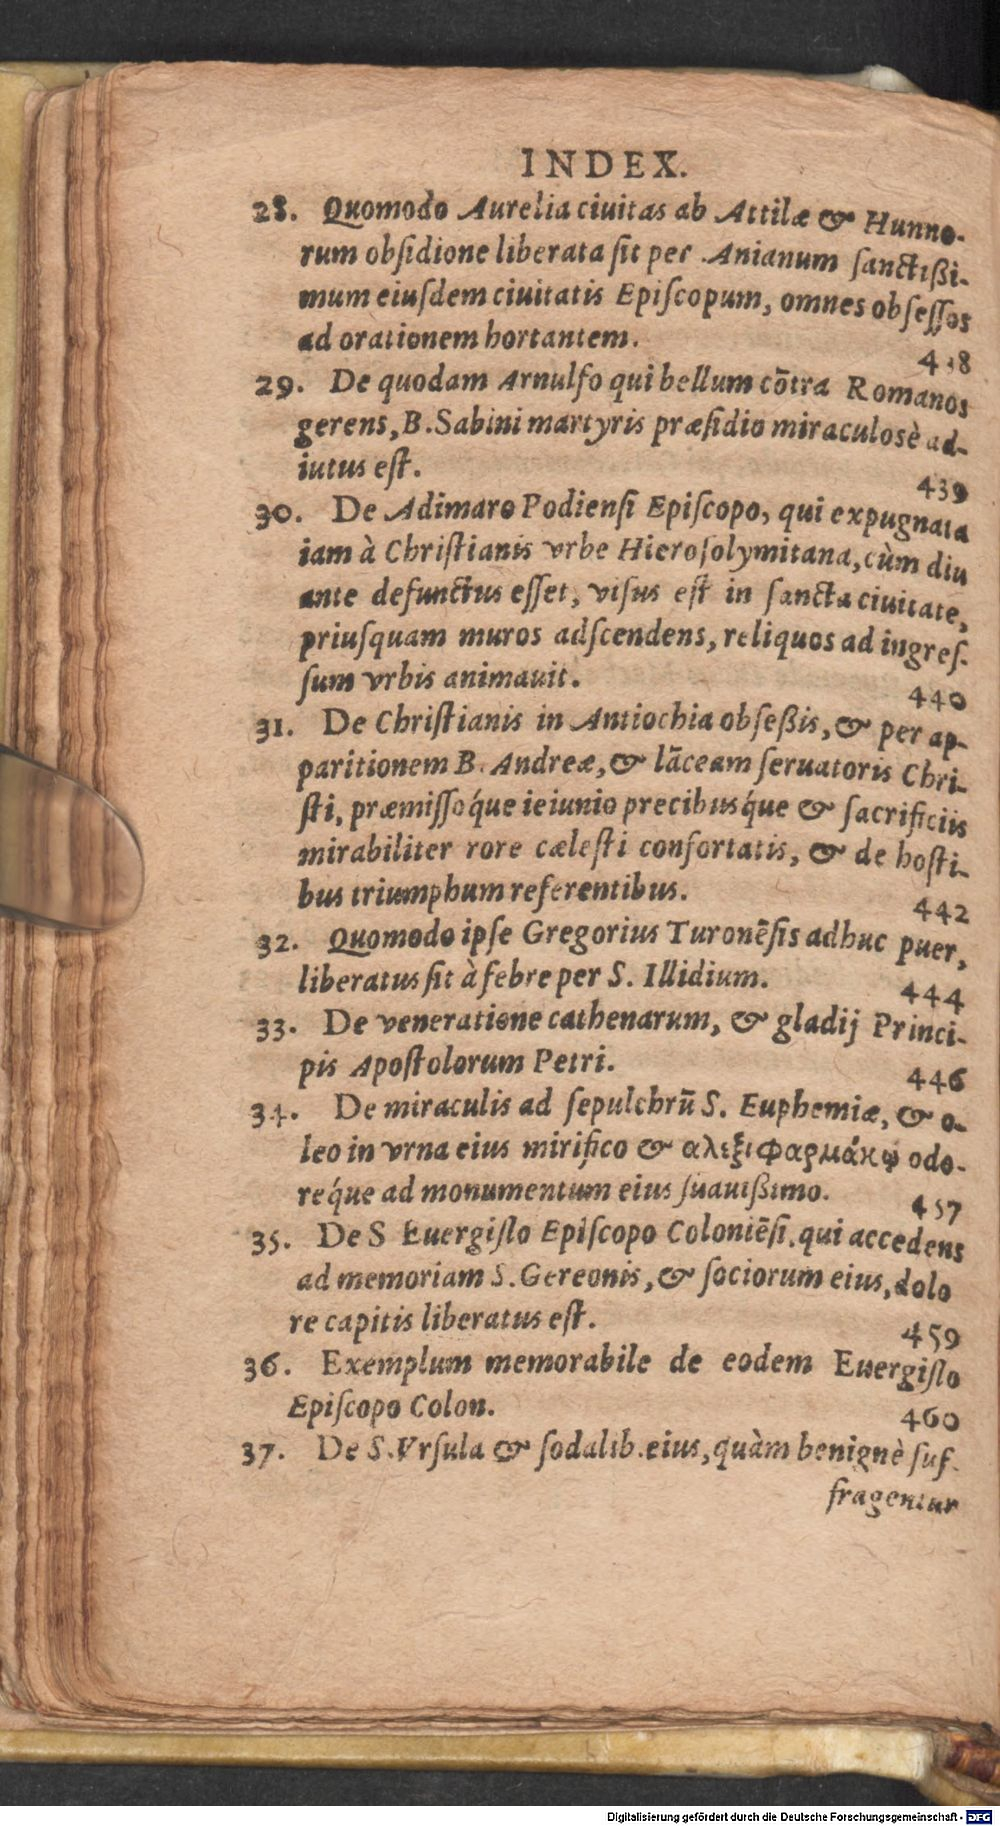 INDEX.
28. Quomodo Aurelia ciuitas ab Attilæ & Hunno-
rum obſidione liberata ſit per Anianum ſanctißi-
mum eiuſdem ciuitatis Epiſcopum, omnes obſeſſos
ad orationem hortantem.
438
29. De quodam Arnulfo qui bellum cōtra Romanos
gerens, B. Sabini martyris præſidio miraculosè ad-
iutus eſt.
439
30. De Adimaro Podienſi Epiſcopo, qui expugnata
iam à Chriſtianis vrbe Hieroſolymitana, cùm diu
ante defunctus eſſet, viſus eſt in ſancta ciuitate,
priuſquam muros adſcendens, reliquos ad ingreſ-
ſum vrbis animauit.
440
31. De Chriſtianis in Antiochia obſeßis, & per ap-
paritionem B. Andreæ, & lāceam ſeruatoris Chri-
ſti, præmiſſoq́ue ieiunio precibusq́ue & ſacrificiis
mirabiliter rore cæleſti confortatis, & de hoſti-
bus triumphum referentibus.
442
32. Quomodo ipſe Gregorius Turonēſis adhuc puer,
liberatus ſit à febre per S. Illidium.
444
33. De veneratione cathenarum, & gladij Princi-
pis Apoſtolorum Petri.
446
34. De miraculis ad ſepulchrū S. Euphemiæ, & o-
leo in vrna eius mirifico & αλεξιφαρμάκῳ odo-
req́ue ad monumentum eius ſuauißimo.
457
35. De S Euergiſlo Epiſcopo Coloniēſi, qui accedens
ad memoriam S. Gereonis, & ſociorum eius, dolo
re capitis liberatus eſt.
459
36. Exemplum memorabile de eodem Euergiſlo
Epiſcopo Colon.
460
37. De S. Vrſula & ſodalib. eius, quàm benignè ſuf-
fragentur
Digitalisierung gefördert durch die Deutsche Forschungsgemeinschaft - DFG